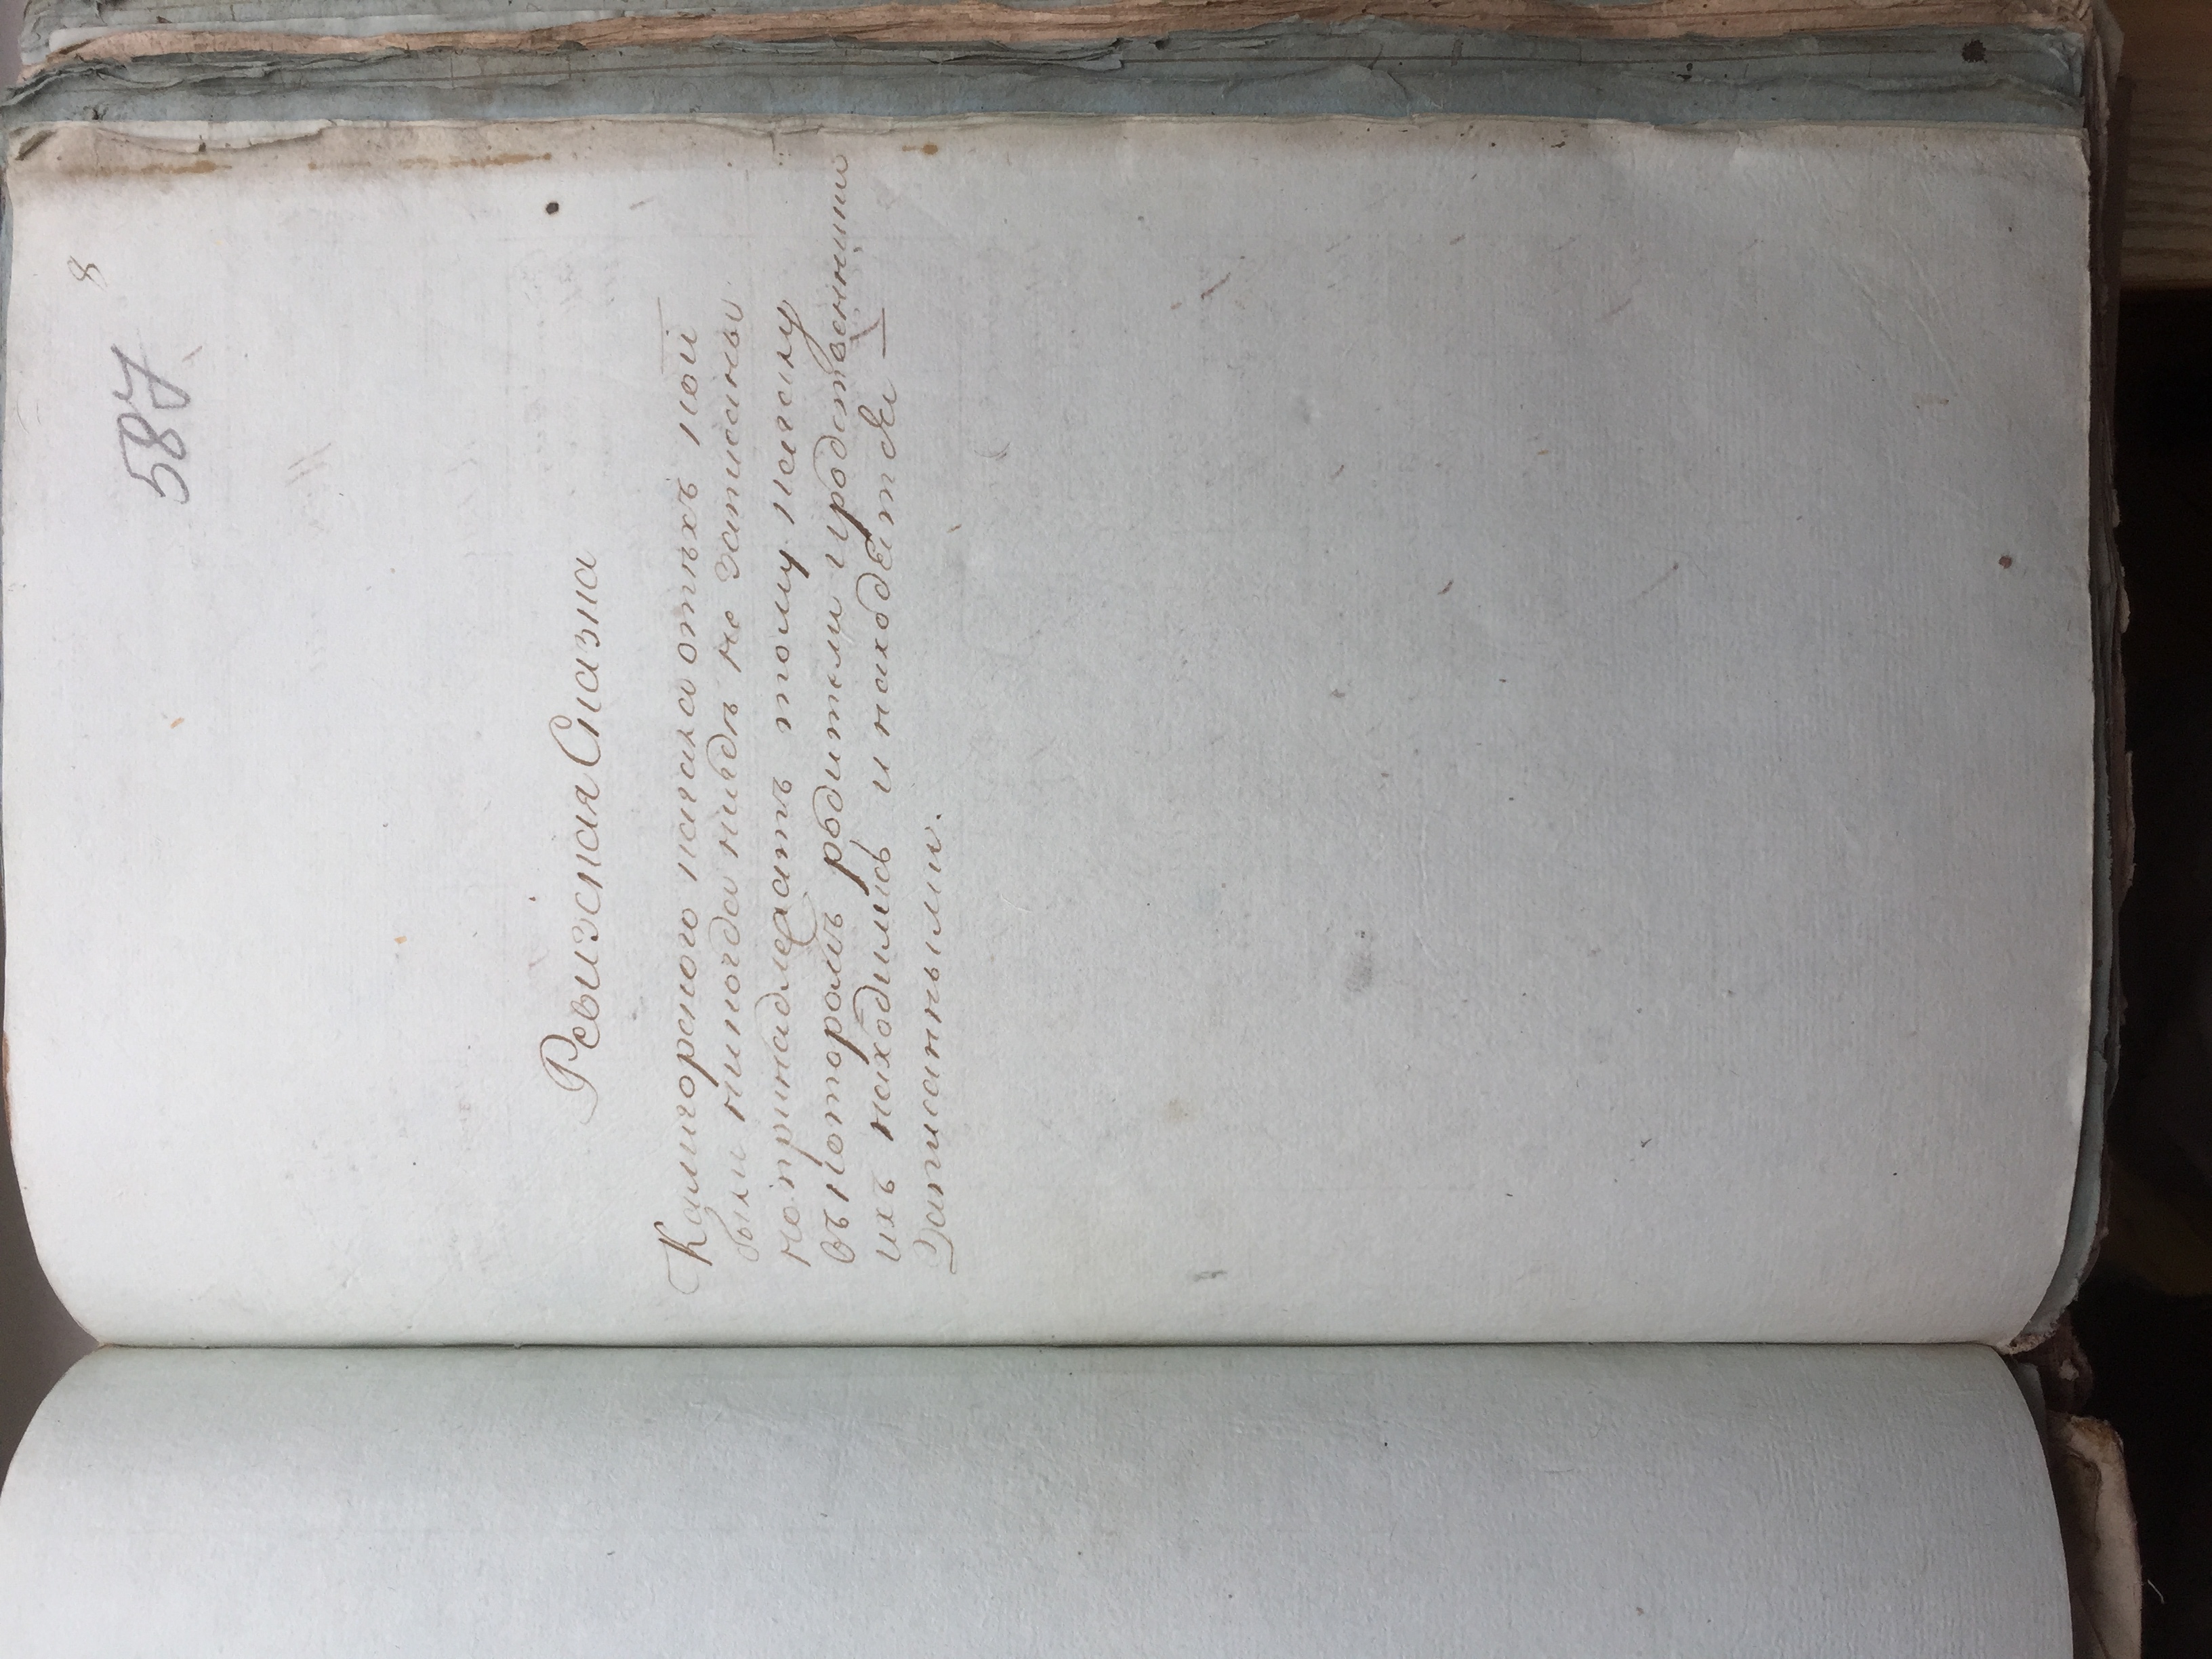 8
587
Ревизская Сказка
Камчорского кагала отѣхъ кои
были никогда нигдѣ не записаны
но принадлежатъ тому кагалу
въ которомъ родители и родственники
ихъ находились и находятся
Записанными.